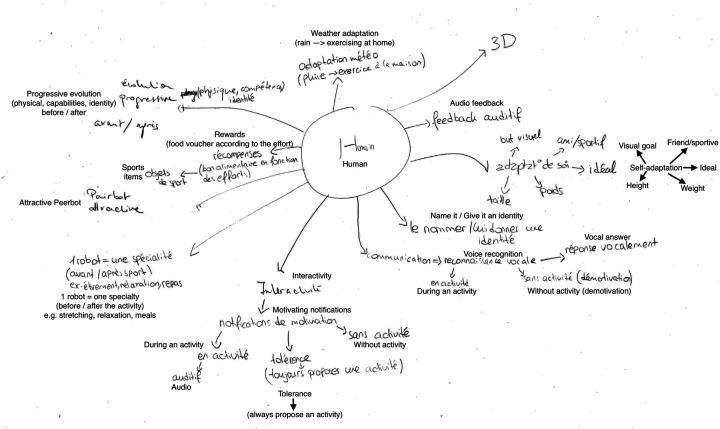 Weather adaptation
(rain —> exercising at home)
adaptation météo
(pluie → exercice à la maison)
3D
Progressive evolution
(physical, capabilities, identity)
before / after
évolution
progressive (physique, compétence,
identité
avant / après
Audio feedback
feedback auditif
Rewards
(food voucher according to the effort)
récompenses
(bon alimentaire en fonction
des efforts)
Sports
items
objets
de sport
Human
Human
but visuel
ami/sportif
adaptat° de soi → idéal
taille
poids
Visual goal
Friend/sportive
Self-adaptation
Ideal
Height
Weight
Attractive Peerbot
Pairbot
attractive
Name it / Give it an identity
le nommer / lui donner une
identité
Voice recognition
Vocal answer
communication => reconnaissance vocale
réponse vocalement
en activité
During an activity
sans activité (démotivation)
Without activity (demotivation)
1 robot = une spécialité
(avant / après sport)
ex: étirement, relaxation, repas
1 robot = one specialty
(before / after the activity)
e.g. stretching, relaxation, meals
Interactivity
Interactivité
Motivating notifications
notifications de motivation
During an activity
en activité
auditif
Audio
sans activité
Without activity
tolérence
(toujours proposer une activité)
Tolerance
(always propose an activity)